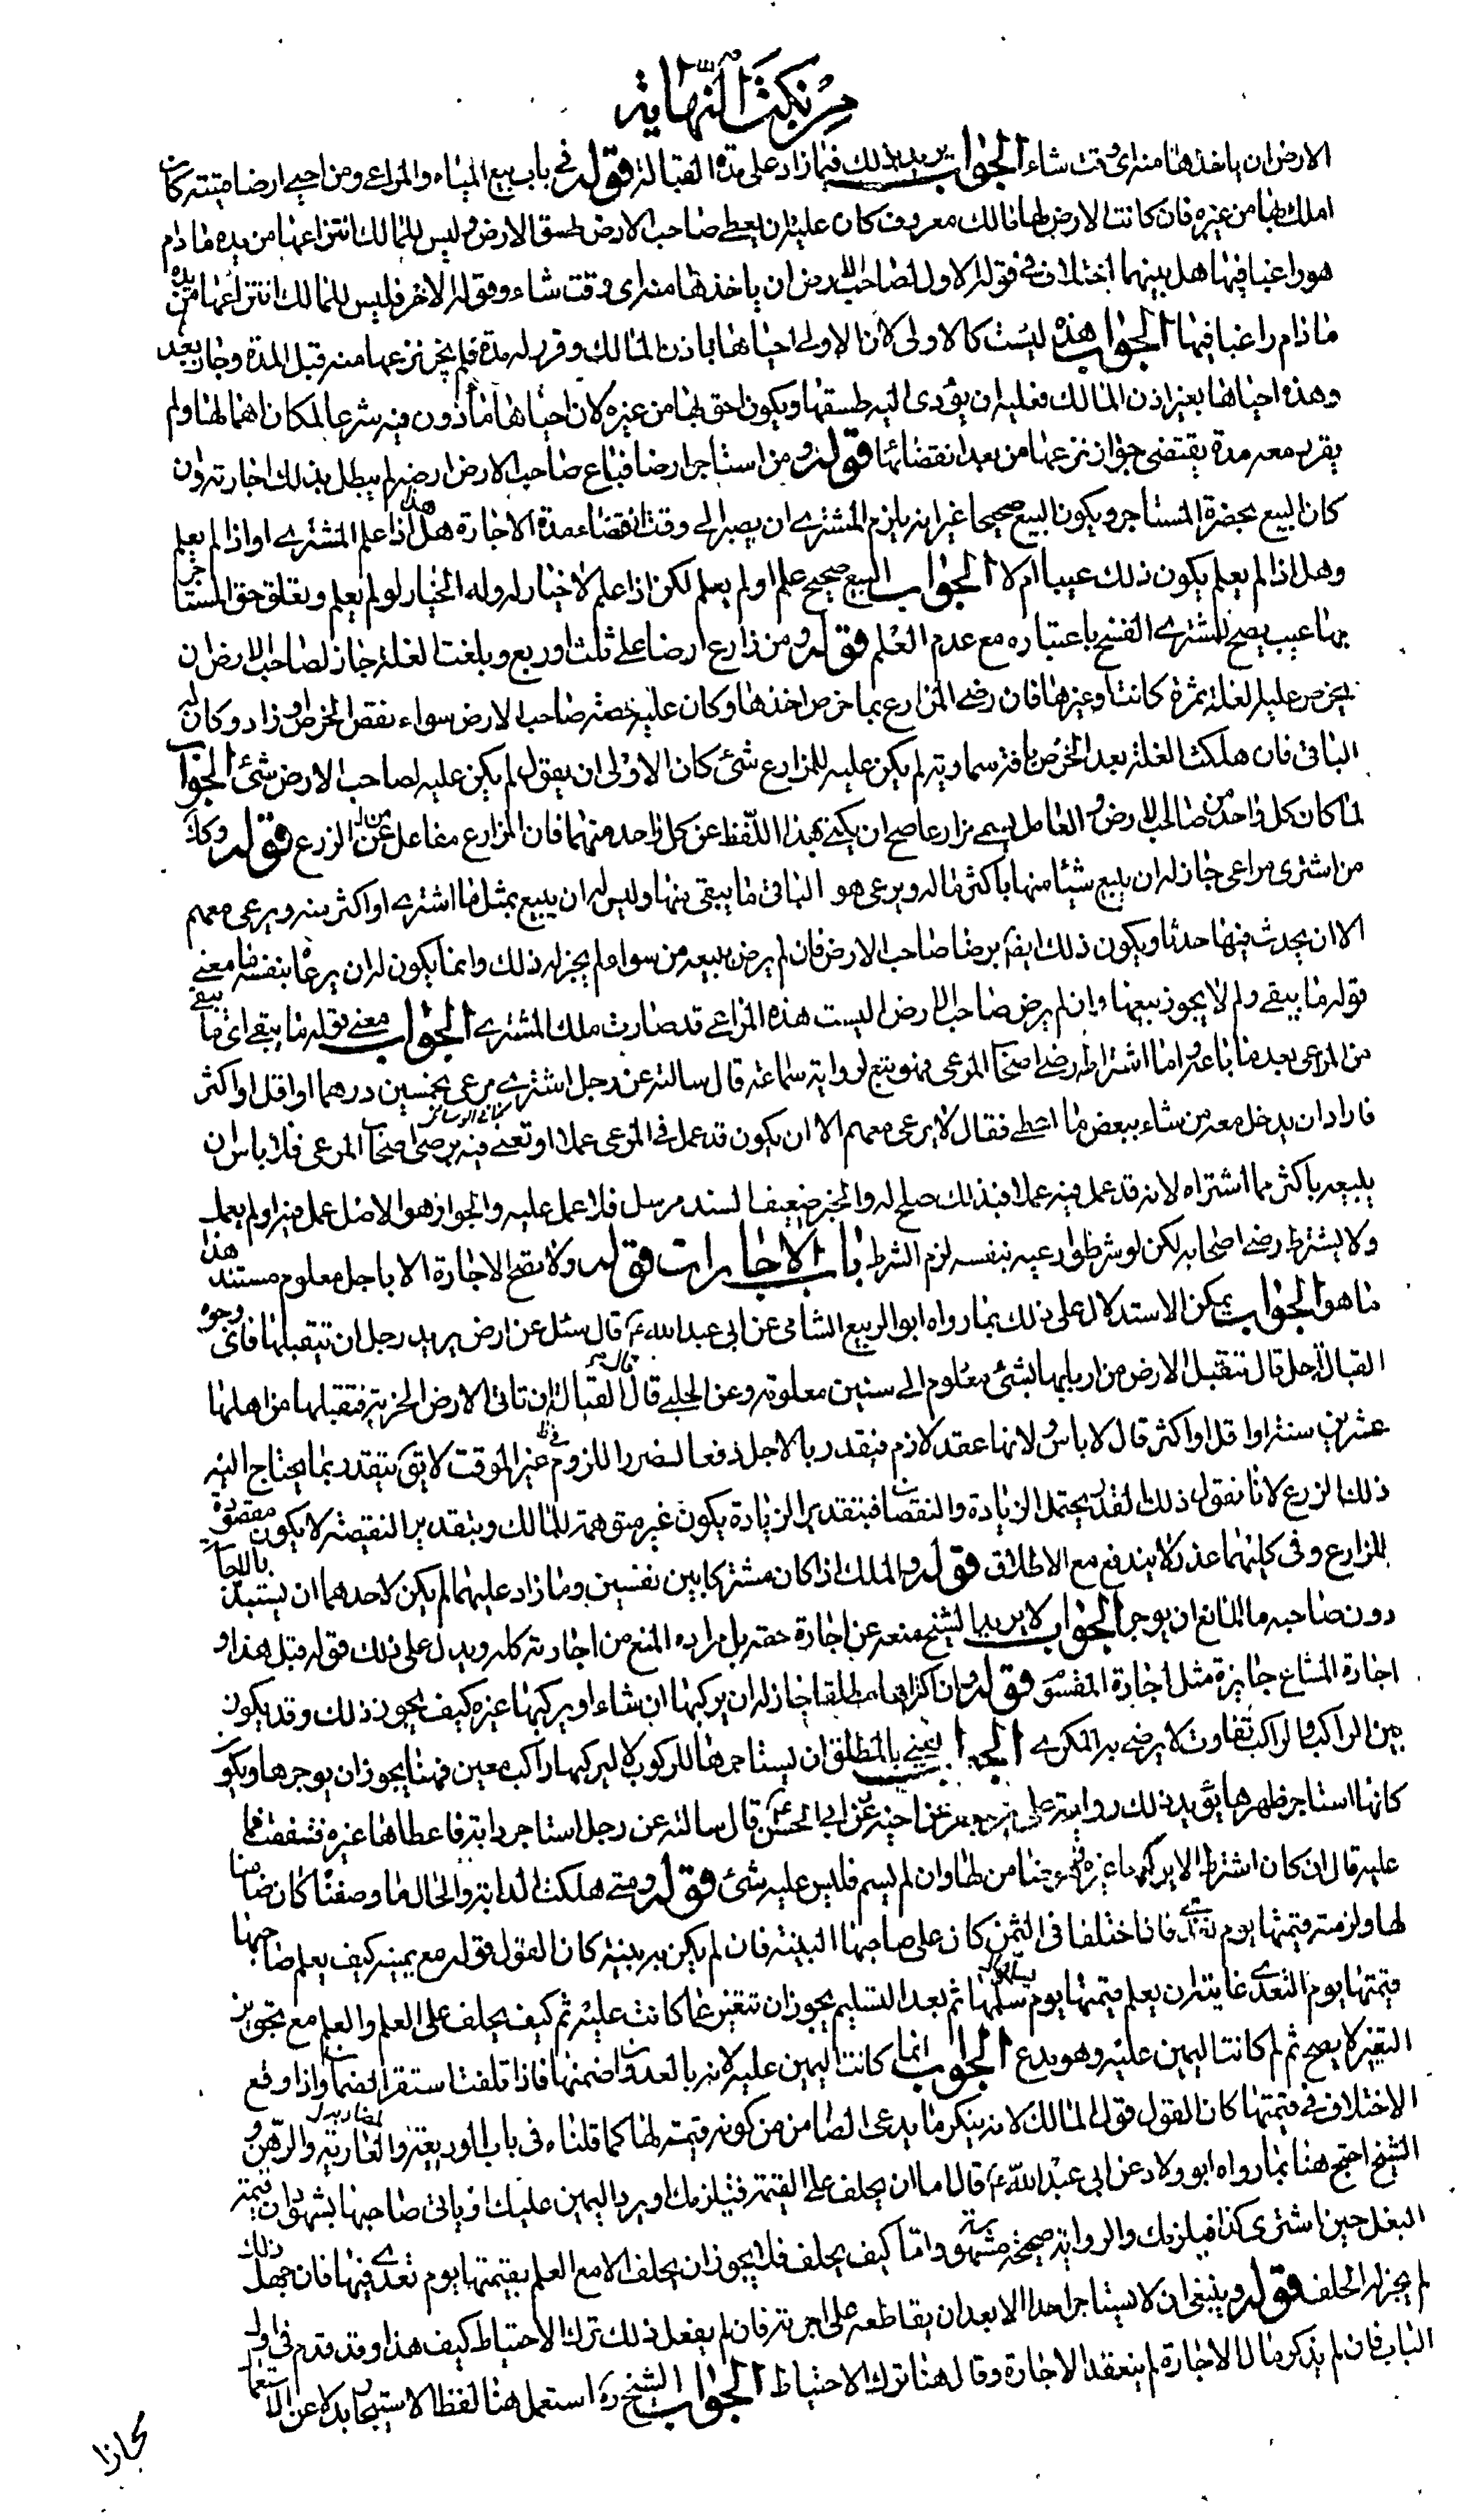 من نكت النهاية
الارض ان ياخذها منه اى وقت شاء الجواب يريد بذلك فيما زاد على مدة القبالة قوله فى باب بيع المياه والمراعى ومن احيى ارضا ميتة كان
املك بها من غيره فان كانت الارض لها مالك معروف كان عليه ان يعطى صاحب الارض طسق الارض وليس للمالك انتزاعها من يده ما دام
هو راغبا فيها هل بينهما اختلاف فى قوله الاول لصاحب الارض ان ياخذها منه اى وقت شاء وقوله الاخر فليس للمالك انتزاعها من يده
ما دام راغبا فيها الجواب هذه ليست كالاولى لان الاولى احياها باذن المالك وقرر له مدة فلم يجز نزعها منه قبل المدة وجاز بعد
وهذه احياها بغير اذن المالك فعليه ان يؤدى اليه طسقها ويكون احق بها من غيره لان احياها مأذون فيه شرعا لمكان اهمالها ولم
يقرر معه مدة يقتضى جواز نزعها من بعد انقضائها قوله ومن استاجر ارضا فباع صاحب الارض ارضه لم يبطل بذلك اجارته وان
كان البيع بحضرة المستاجر ويكون البيع صحيحا غير انه يلزم المشترى ان يصبر الى وقت انقضاء مدة الاجارة هل هذا اذا علم المشترى او اذا لم يعلم
وهل اذا لم يعلم يكون ذلك عيبا ام لا الجواب البيع صحيح علم او لم يعلم لكن اذا علم لا خيار له وله الخيار لو لم يعلم وتعلق حق المستاجر
بها عيب يصح للمشترى الفسخ باعتباره مع عدم العلم قوله ومن زارع ارضا على ثلث او ربع وبلغت الغلة جاز لصاحب الارض ان
يخرص عليه الغلة ثمرة كانت او غيرها فان رضى المزارع بما خرص اخذها وكان عليه حصة صاحب الارض سواء نقص الخرص او زاد وكان له
الباقى فان هلكت الغلة بعد الخرص بافة سماوية لم يكن عليه للمزارع شئ كان الاولى ان يقول لم يكن عليه لصاحب الارض شئ الجواب
لما كان كل واحد من صاحب الارض والعامل يسمى مزارعا صح ان يكنى بهذا اللفظ عن كل واحد منهما فان المزارع مفاعل من الزرع قوله وكل
من اشترى مراعى جاز له ان يبيع شيئا منها باكثر ماله ويرعى هو الباقى ما يبقى منها وليس له ان يبيع بمثل ما اشترى او اكثر منه ويرعى معهم
الا ان يحدث فيها حدثا ويكون ذلك ايضا برضا صاحب الارض فان لم يرض ببيعه من سواه لم يجز له ذلك وانما يكون له ان يرعاه بنفسه ما معنى
قوله ما يبقى ولم لا يجوز بيعها وان لم يرض صاحب الارض اليست هذه المراعى قد صارت ملك المشترى الجواب معنى قوله ما يبقى اى ما يبقى
من المرعى بعد ما باعه واما اشتراط رضى اصحاب المرعى فهو تبع لرواية سماعة قال سالته عن رجل اشترى مرعى بخمسين درهما او اقل او اكثر
فاراد ان يدخل معه من شاء ببعض ما اعطى فقال لا يرعى معهم الا ان يكون قد عمل فى المرعى عملا او تعنى فيه برضى اصحاب المرعى فلا باس ان
يبيعه باكثر مما اشتراه لانه قد عمل فيه عملا فبذلك صلح له والخبر ضعيف السند مرسل فلا عمل عليه والجواز هو الاصل عمل فيه او لم يعمل
ولا يشترط رضى اصحابه لكن لو شرطوا رعيه بنفسه لزم الشرط باب الاجارات قوله ولا تصح الاجارة الا باجل معلوم مستند هذا
ما هو الجواب يمكن الاستدلال على ذلك بما رواه ابو الربيع الشامى عن ابى عبد الله ع قال سئل عن ارض يريد رجل ان يتقبلها فاى وجوه
القبالة احل قال تتقبل الارض من اربابها بشئ معلوم الى سنين معلومة وعن الحلبى قال قال القبالة ان تاتى الارض الخربة فتقبلها من اهلها
عشرين سنة او اقل او اكثر قال لا باس ولانها عقد لازم فيقدر بالاجل دفعا لضرر اللزوم فى غير الموقت لا يق يتقدر بما يحتاج اليه
ذلك الزرع لانا نقول ذلك القدر يحتمل الزيادة والنقصان فبتقدير الزيادة يكون غير متوهمة للمالك وبتقدير النقيصة لا يكون مقصودة
للمزارع وفى كليهما عذر لا يندفع مع الاطلاق قوله والملك اذا كان مشتركا بين نفسين وما زاد عليهما لم يكن لاحدهما ان يستبد بالاجارة
دون صاحبه ما المانع ان يوجر الجواب لا يريد الشيخ منعه عن اجارة حقه بل مراده المنع من اجارته كله ويدل على ذلك قوله قبل هذا و
اجارة المشاع جايزة مثل اجارة المقسوم قوله وان اكتراها مطلقا جاز له ان يركبها ان شاء او يركبها غيره كيف يجوز ذلك وقد يكون
بين الراكب والراكب تفاوت لا يرضى به المكرى الجواب يعنى بالمطلق ان يستاجرها للركوب لا ليركبها راكب معين فهنا يجوز ان يوجرها ويكون
كانها استاجر ظهرها يؤيد ذلك رواية على بن جعفر عن اخيه عن ابى الحسن ع قال سالته عن رجل استاجر دابة فاعطاها غيره فنفقت فما
عليه قال ان كان اشترط الا يركبها غيره فهو ضامن لها وان لم يسم فليس عليه شئ قوله ومتى هلكت الدابة والحال ما وصفنا كان ضامنا
لها ولزمته قيمتها يوم تعدى فان اختلفا فى الثمن كان على صاحبها البينة فان لم يكن به بينة كان القول قوله مع يمينه كيف يعلم صاحبها
قيمتها يوم التعدى غايته ان يعلم قيمتها يوم سلمها ثم بعد التسليم يجوز ان تتغير عما كانت عليه ثم كيف يحلف على العلم والعلم مع تجويز
التغير لا يصح ثم لم كانت اليمين عليه وهو مدع الجواب انما كانت اليمين عليه لانه بالعدوان ضمنها فاذا تلفت استقر الضمان واذا وقع
الاختلاف فى قيمتها كان القول قول المالك لانه ينكر ما يدعى الضامن من كونه قيمة لها كما قلناه فى باب الوديعة والعارية والرهن و
الشيخ احتج هنا بما رواه ابو ولاد عن ابى عبد الله ع قال اما ان يحلف على القيمة فيلزمك او يرد اليمين عليك او ياتى صاحبها بشهود ان قيمة
البغل حين اشترى كذا فيلزمك والرواية صحيحة مشهورة واما كيف يحلف فلا يجوز ان يحلف الا مع العلم بقيمتها يوم تعدى فيها فان جهل ذلك
لم يجز له الحلف قوله وينبغى ان لا يستاجر احدا الا بعد ان يقاطعه على اجرته فان لم يفعل ذلك ترك الاحتياط كيف هذا وقد قدم فى اول
الباب فان لم يذكر مال الاجارة لم ينعقد الاجارة وقال هنا ترك الاحتياط الجواب الشيخ ره استعمل هنا لفظ الاستيجار بدلا عن الاستعمال
مجازا